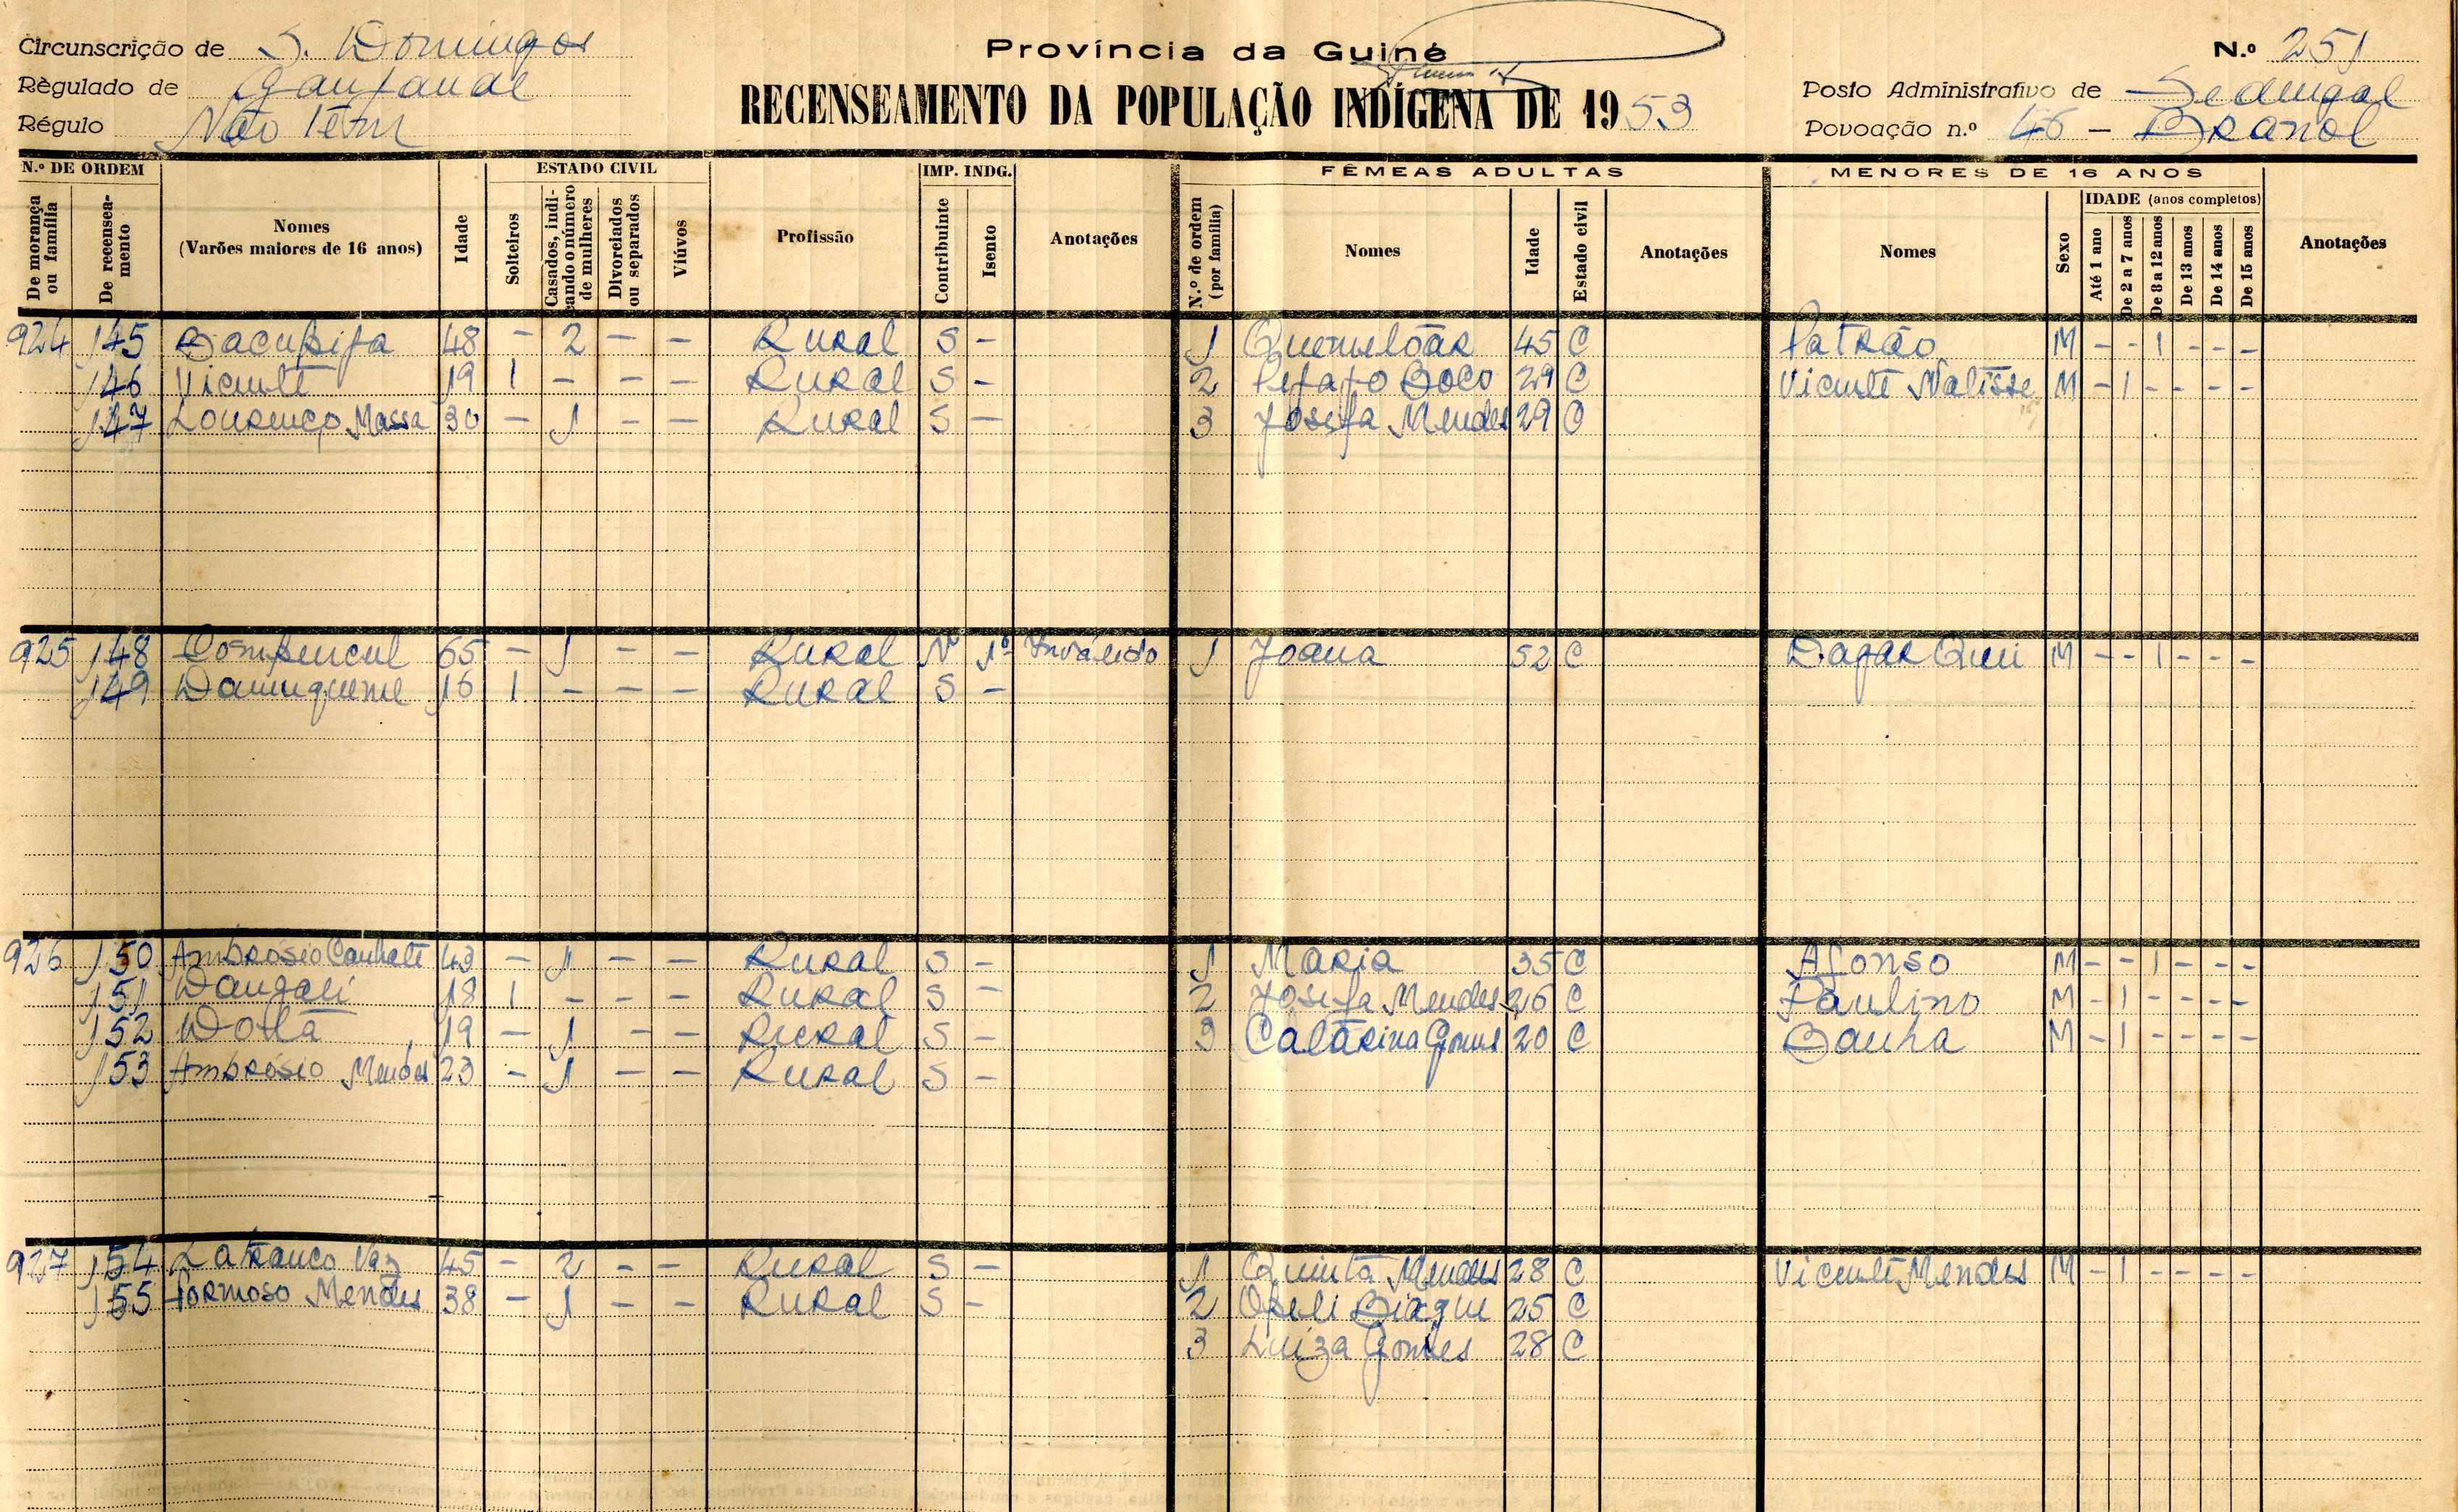 Província da Guiné
RECENSEAMENTO DA POPULAÇÃO INDÍGENA DE 1953
Circunscrição de S. Domingos
Règulado de
Régulo Não Tem
N.º 251
Posto Administrativo de Sedengal
Povoação n.º 46 -
N.º DE ORDEM
De morança ou família
De recensea-mento
Nomes
(Varões maiores de 16 anos)
Idade
ESTADO CIVIL
Solteiros
Casados, indi-cando o número de mulheres
Divorciados ou separados
Viúvos
Profissão
IMP. INDG.
Contribuinte
Isento
Anotações
FÊMEAS ADULTAS
N.º de ordem (por família)
Nomes
Idade
Estado civil
Anotações
MENORES DE 16 ANOS
Nomes
Sexo
IDADE (anos completos)
Até 1 ano
De 2 a 7 anos
De 8 a 12 anos
De 13 anos
De 14 anos
De 15 anos
Anotações
924 145 48 - 2 - - Rural S - 1 45 C Patrão M - - 1 - - -
146 Vicente 19 1 - - - Rural S - 2 29 C Vicente Natisse M - 1 - - - -
147 Lourenço Massa 30 - 1 - - Rural S - 3 Josefa Mendes 29 C
925 148 65 - 1 - - Rural N Inválido 1 Joana 52 C M - - 1 - - -
149 16 1 - - - Rural S -
926 150 Ambrósio 43 - 1 - - Rural S - 1 Maria 35 C Afonso M - - 1 - - -
151 18 1 - - - Rural S - 2 Josefa Mendes 26 C Paulino M - 1 - - - -
152 19 - 1 - - Rural S - 3 Catarina Gomes 20 C M - 1 - - - -
153 Ambrósio Mendes 23 - 1 - - Rural S -
927 154 Vaz 45 - 2 - - Rural S - 1 Quinta Mendes 28 C Vicente Mendes M - 1 - - - -
155 Formoso Mendes 38 - 1 - - Rural S - 2 25 C
3 Luiza Gomes 28 C